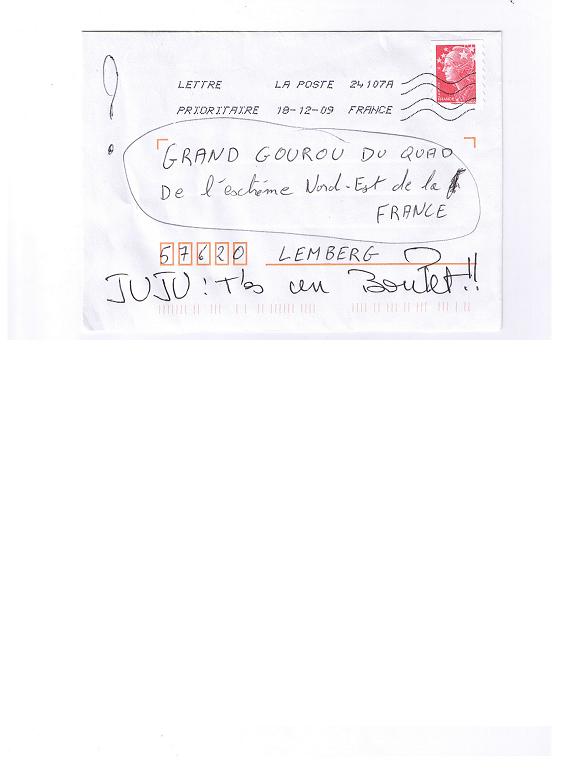 LETTRE LA POSTE 24107A
PRIORITAIRE 18-12-09 FRANCE
!
GRAND GOUROU DU QUAD
De l'extrême Nord-Est de la
FRANCE
57620 LEMBERG
JUJU : T'es un Boulet !!